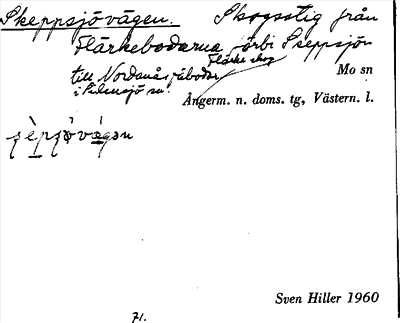 Skeppsjövägen. Skogsstig från
Flärkebodarna förbi Skeppsjön
Flärke skog
till Nordanås fäbodar
Mo sn
i Sidensjö sn.
Ångerm. n. doms. tg, Västern. l.
Sven Hiller 1960
71.